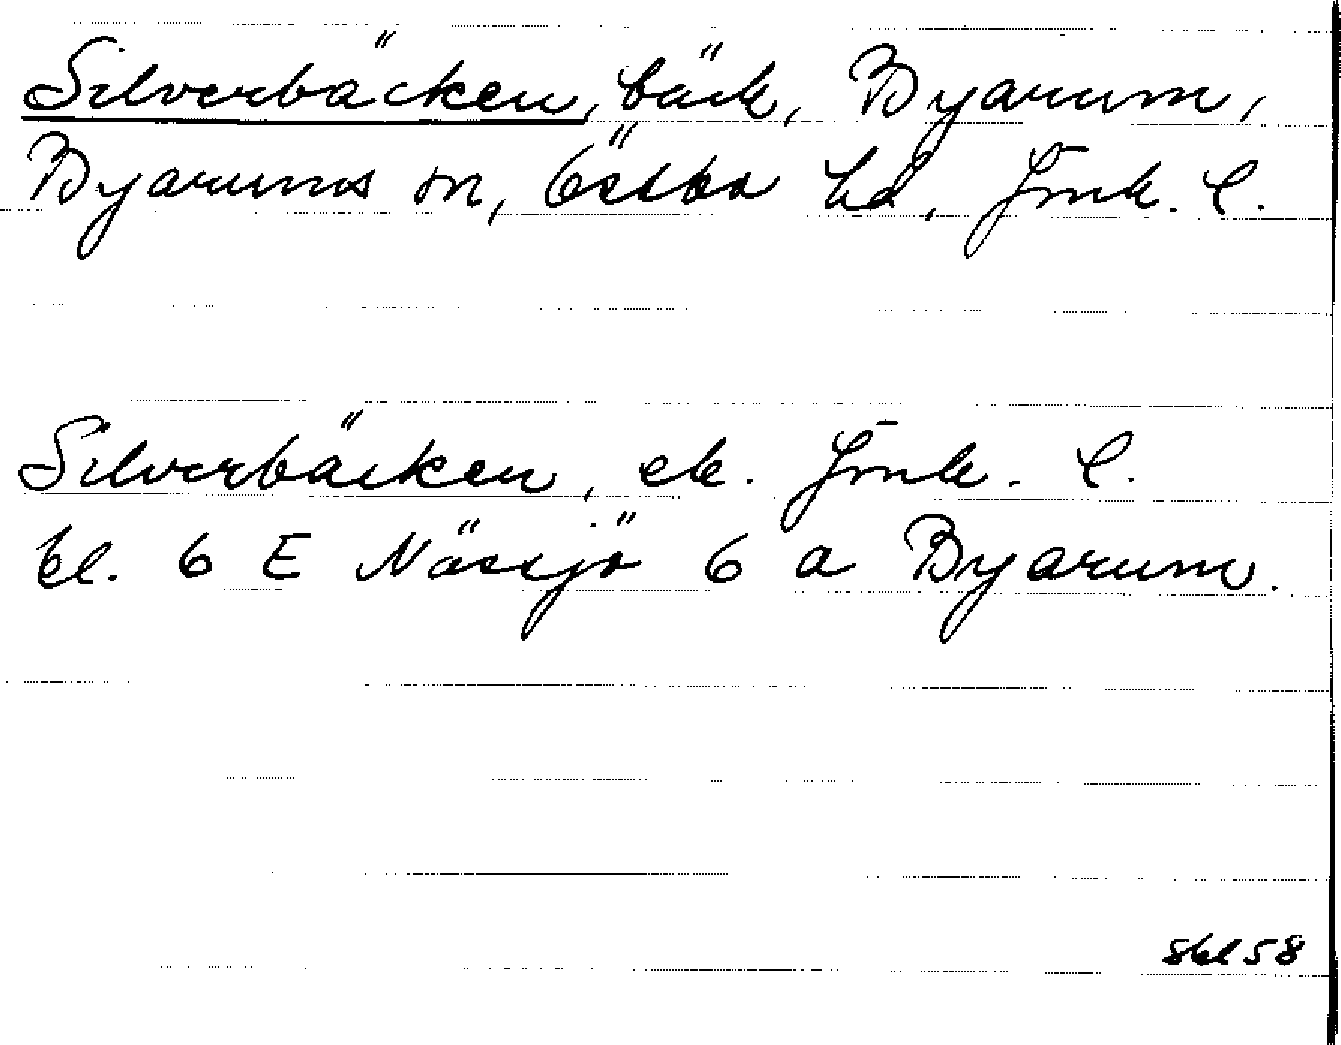 Silverbäcken, bäck, Byarum,
Byarums sn, Östbo hd, Jmk. l.
Silverbäcken, ek. Jmk. l.
bl. 6 E Nässjö 6 a Byarum.
Skl 58